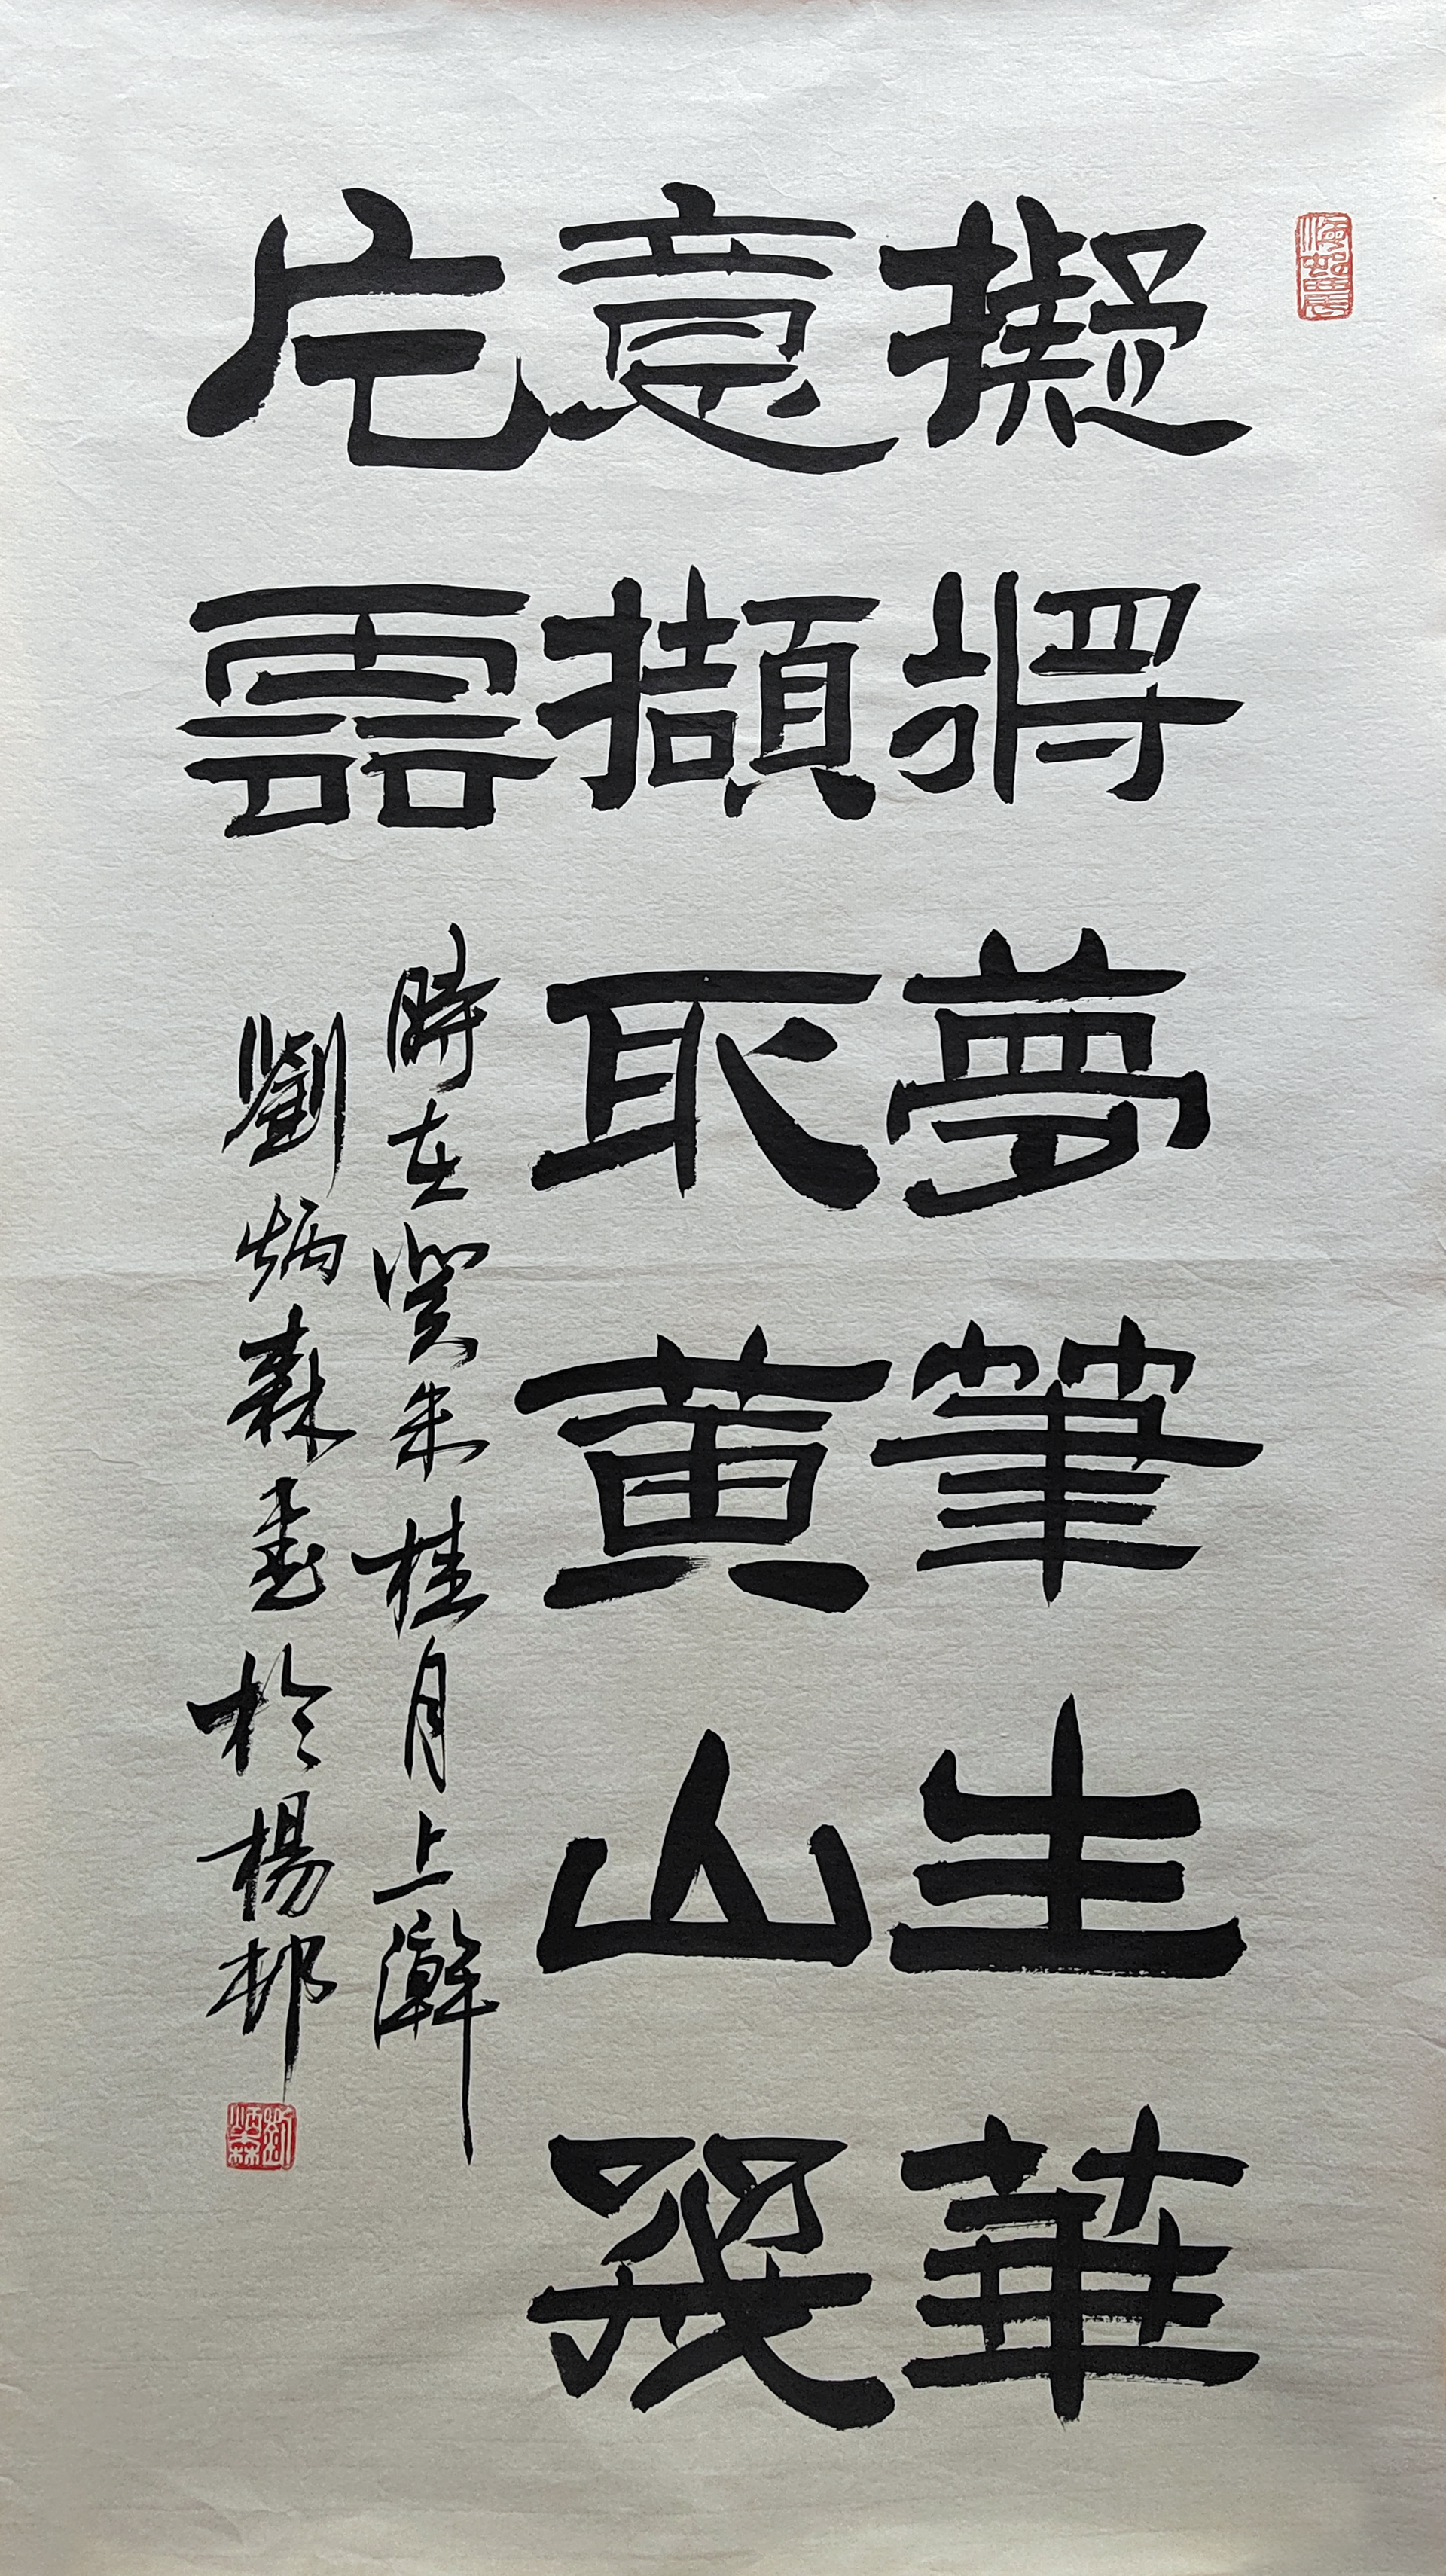 擬將夢筆生華
意擷取黃山幾
片雲
時在癸未桂月上澣
劉炳森書於楊邨
劉炳森